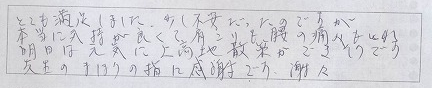 とても満足しました。少し不安だったのですが
本当に気持が良くて肩こりも腰の痛みも
明日は元気に上高地散策ができそうです
先生のまほうの指に感謝です。謝々